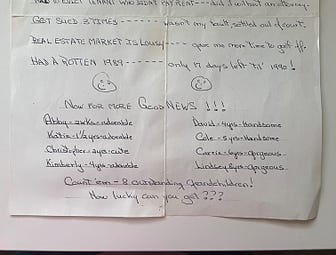 HAD TO EVICT TENANT WHO DIDN'T PAY RENT --- did it without an attorney.
GOT SUED 3 TIMES ------ wasn't my fault, settled out of court.
REAL ESTATE MARKET IS LOUSY---- gave me more time to golf.
HAD A ROTTEN 1989------- only 17 days left 'til' 1990!
NOW FOR MORE GOOD NEWS!!!
Abby-2wks-adorable
David-4yrs-handsome
Katie-1½yrs-adorable
Cole-5yrs-handsome
Christopher-2yrs-cute
Carrie-6yrs-gorgeous
Kimberly-4yrs-adorable
Lindsey 8yrs-gorgeous
Count 'em-8 outstanding grandchildren!
How lucky can you get???